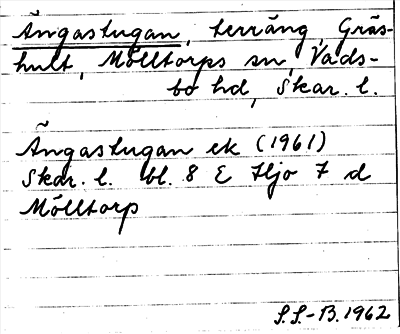 Ängastugan, terräng, Gräs-
hult, Mölltorps sn, Vads-
bo hd, Skar. l.
Ängastugan ek (1961)
Skar. l. bl. 8 E Hjo 7 d
Mölltorp
S.S-B. 1962